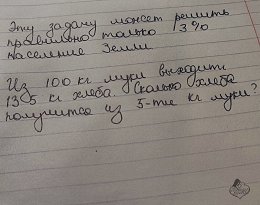 Эту задачу может решить
правильно только 13%
население Земли
Из 100 кг муки выходит
13 5 кг хлеба. Сколько хлеба
получится из 5-ти кг муки?